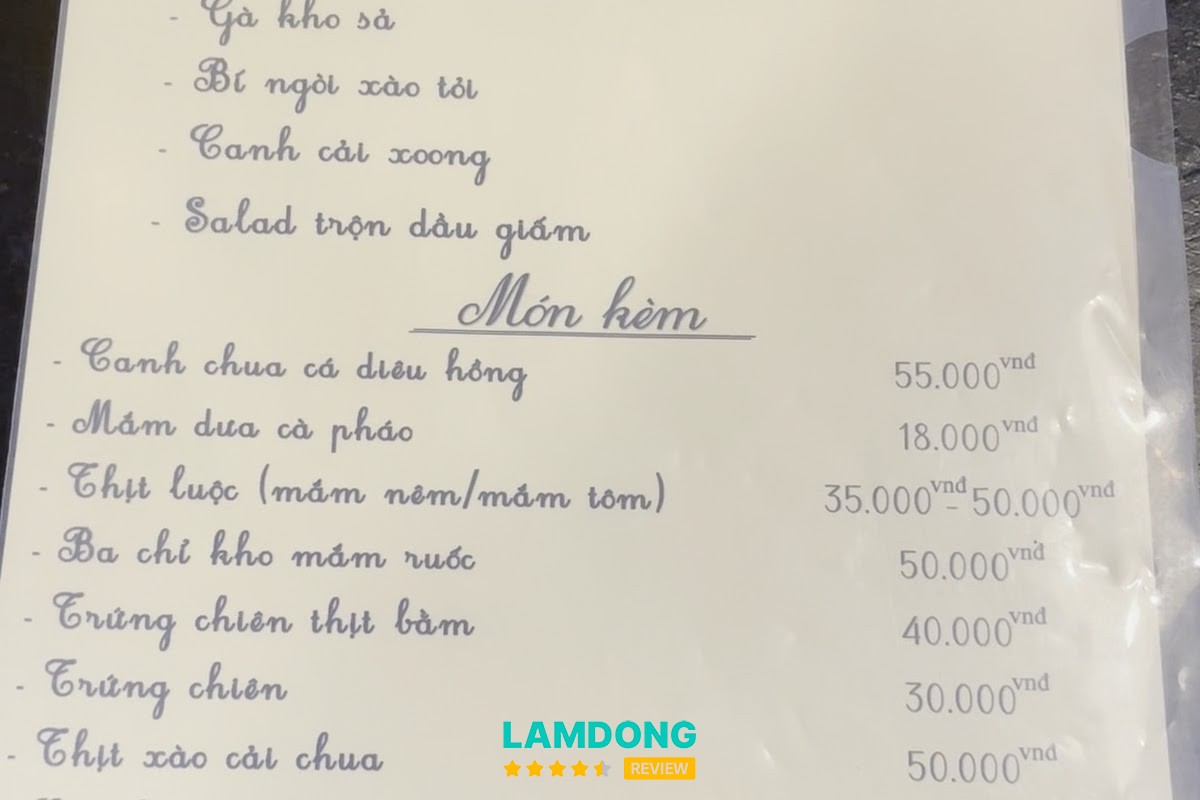 - Gà kho sả
- Bí ngòi xào tỏi
- Canh cải xoong
- Salad trộn dầu giấm
Món kèm
- Canh chua cá diêu hồng 55.000vnđ
- Mắm dưa cà pháo 18.000vnđ
- Thịt luộc (mắm nêm/mắm tôm) 35.000vnđ - 50.000vnđ
- Ba chỉ kho mắm ruốc 50.000vnđ
- Trứng chiên thịt bằm 40.000vnđ
- Trứng chiên 30.000vnđ
- Thịt xào cải chua 50.000vnđ
LAMDONG
REVIEW